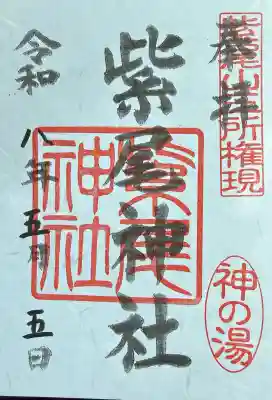 奉拝
紫尾山三所権現
紫尾神社
紫尾神社
神の湯
令和八年五月五日